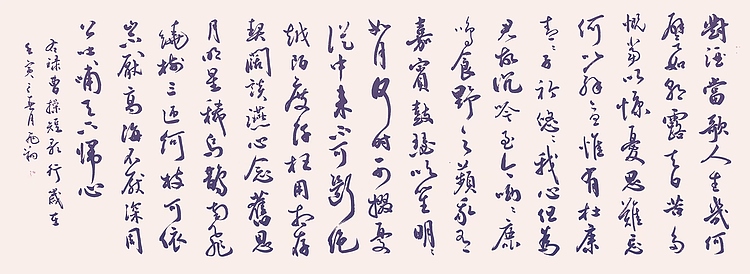 對酒當歌人生幾何
譬如朝露去日苦多
慨當以慷憂思難忘
何以解憂惟有杜康
青々子衿悠々我心但為
君故沉吟至今呦々鹿
鳴食野之蘋我有
嘉賓鼓瑟吹笙明々
如月何時可掇憂
從中來不可斷絕
越陌度阡枉用相存
契闊談讌心念舊恩
月明星稀烏鵲南飛
繞樹三匝何枝可依
山不厭高海不厭深周
公吐哺天下歸心
右錄曹操短歌行歲在
壬寅之春月